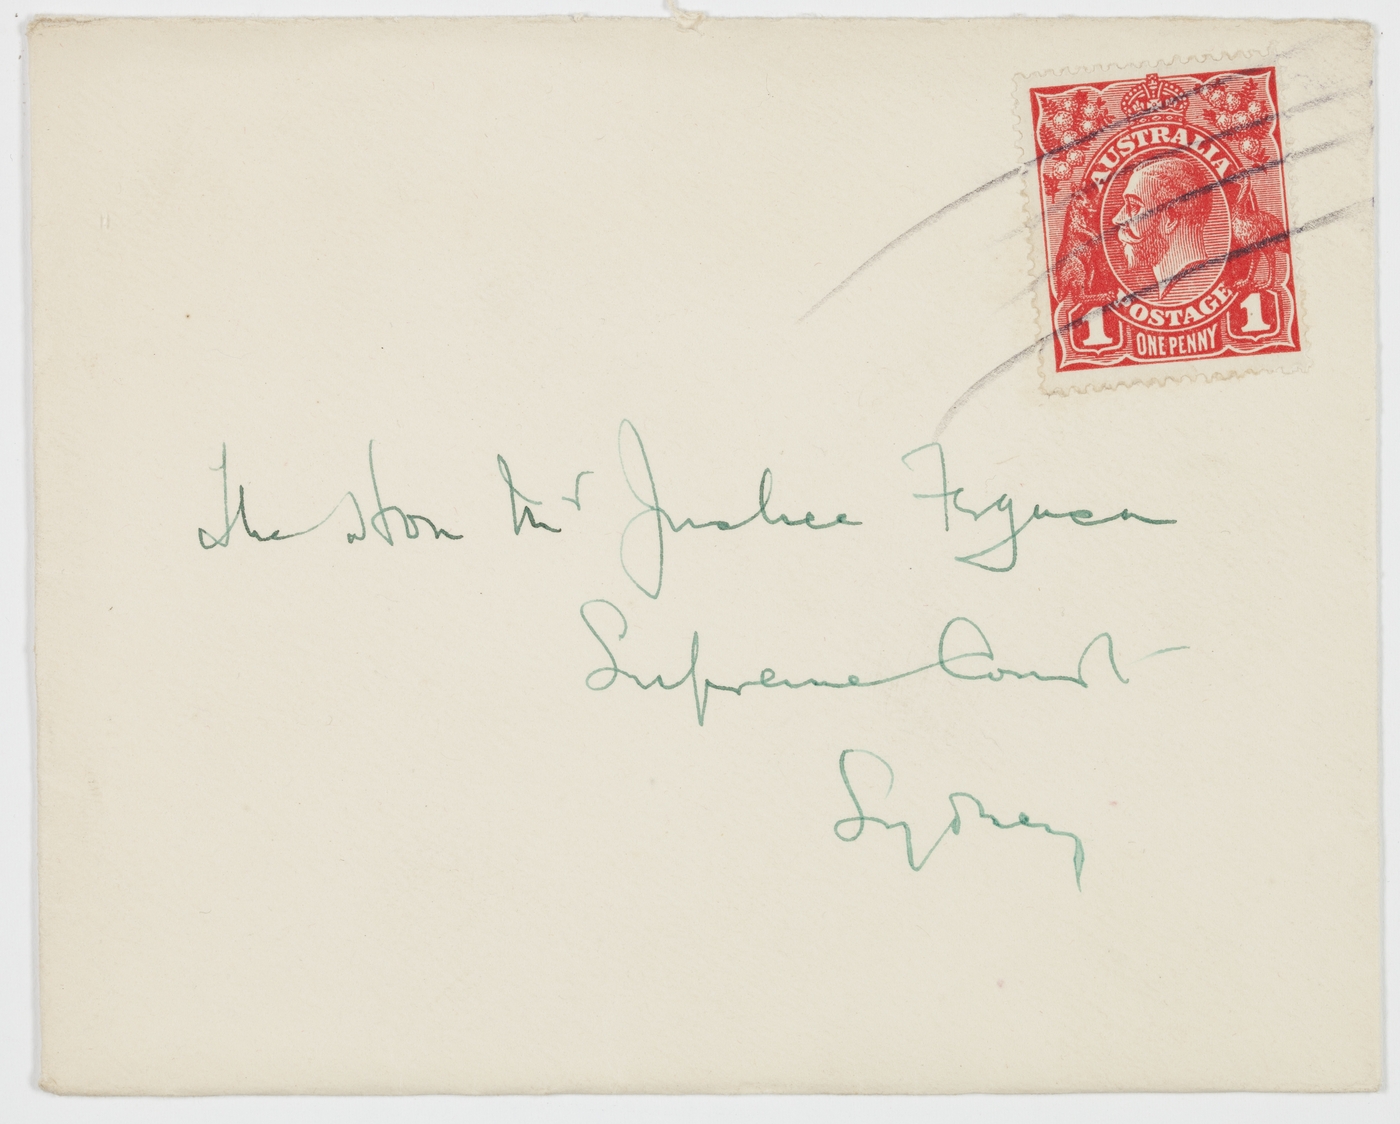 AUSTRALIA
POSTAGE
1 ONE PENNY 1
The Hon Mr Justice Ferguson
Supreme Court
Sydney